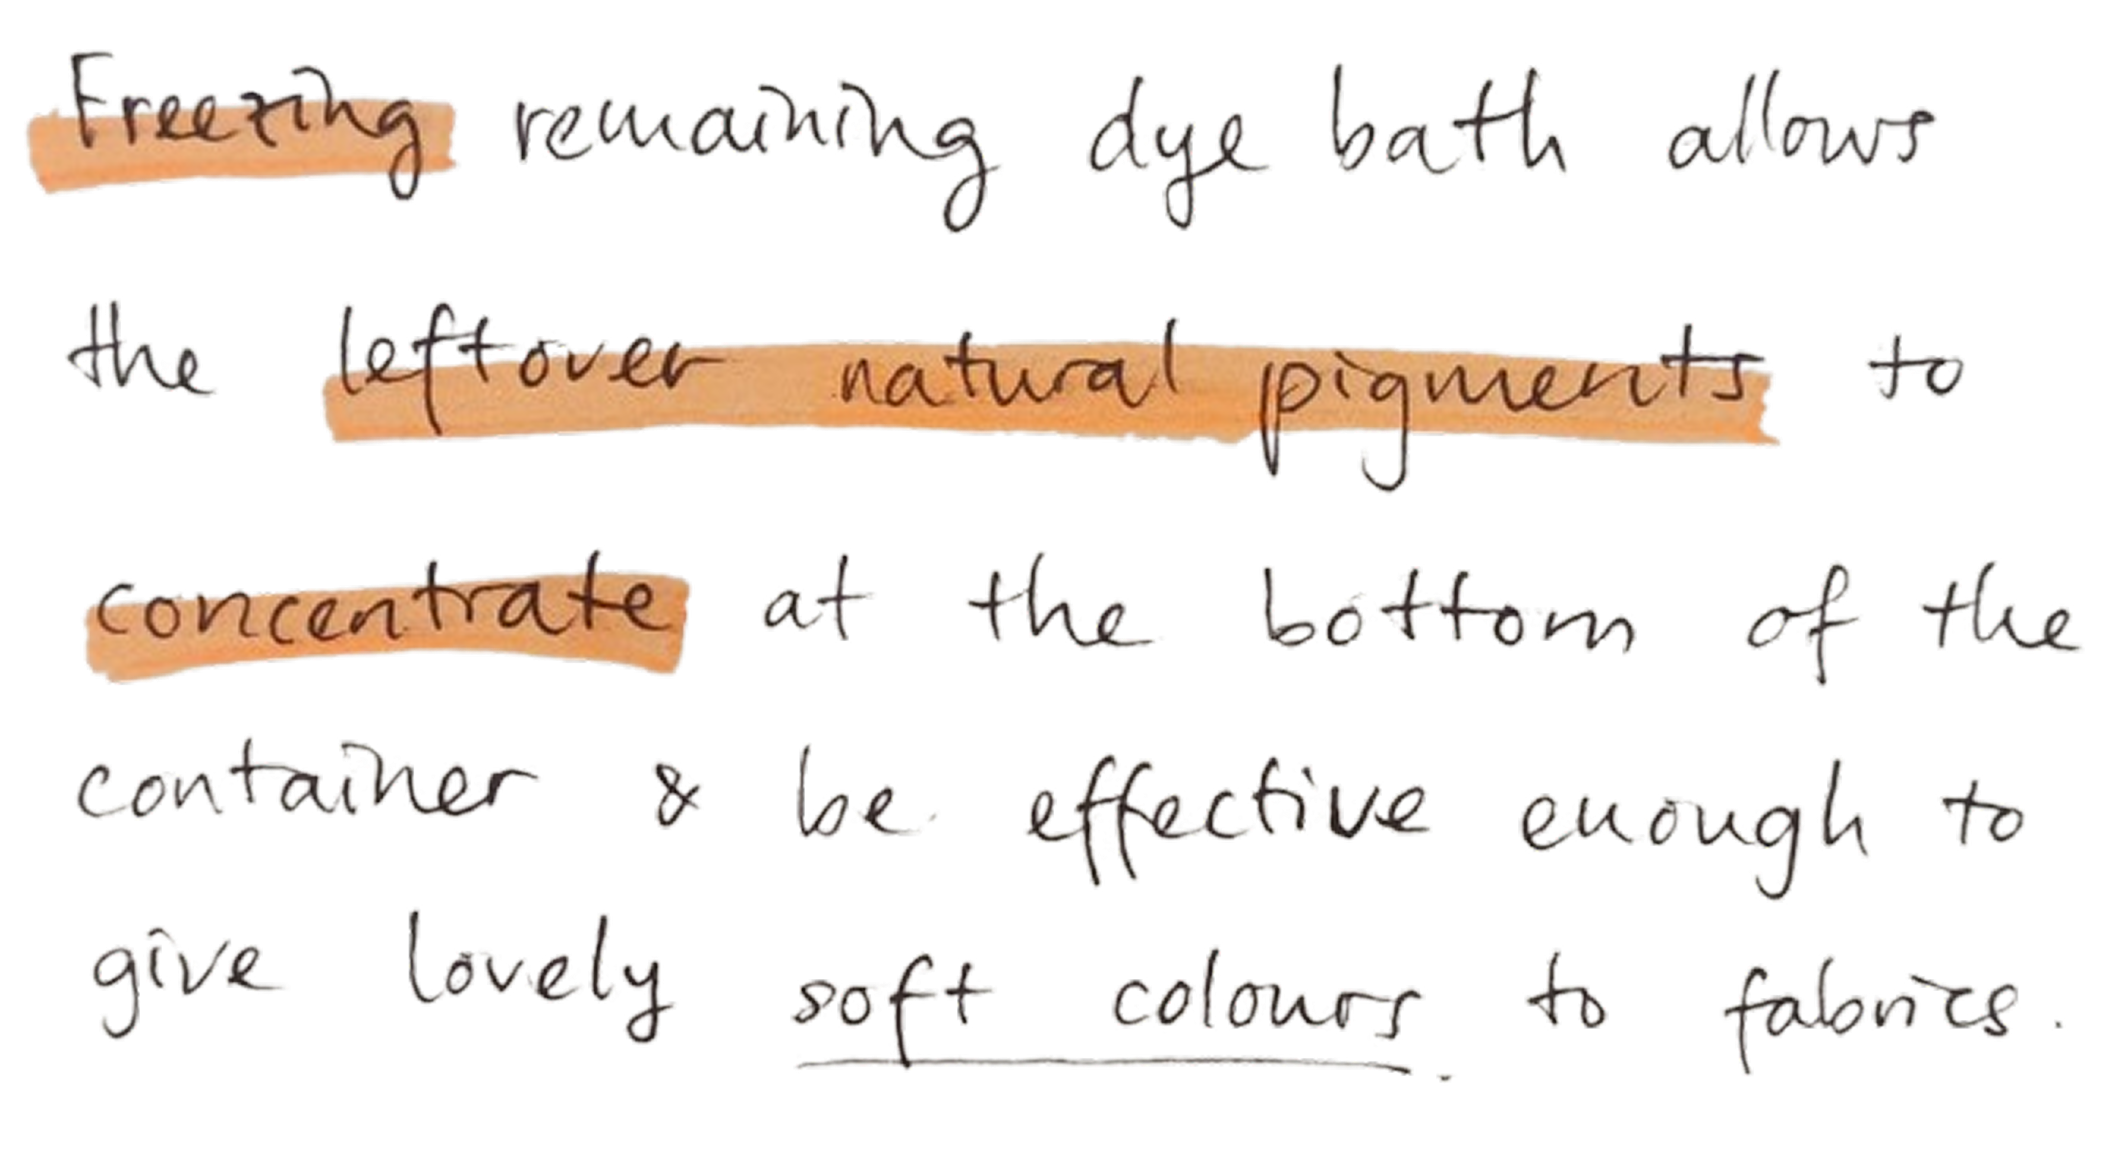 Freezing remaining dye bath allows
the leftover natural pigments to
concentrate at the bottom of the
container & be effective enough to
give lovely soft colours to fabrics.